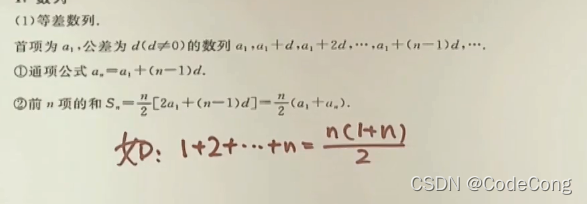 (1)等差数列.
首项为 a₁,公差为 d(d≠0)的数列 a₁,a₁+d,a₁+2d,⋯,a₁+(n-1)d,⋯.
①通项公式 aₙ=a₁+(n-1)d.
②前 n 项的和 Sₙ=n/2[2a₁+(n-1)d]=n/2(a₁+aₙ).
如: 1+2+⋯+n=n(1+n)/2
CSDN @CodeCong